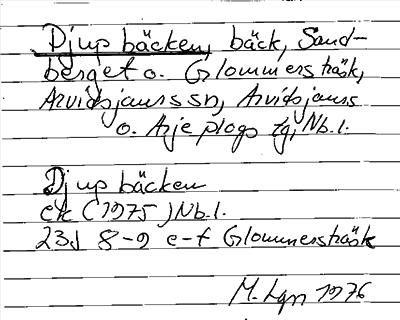 Djupbäcken, bäck, Sand-
berget o. Glommersträsk,
Arvidsjaurs sn, Arvidsjaurs
o. Arjeplogs tg, Nb.l.
Djupbäcken
ek (1975) Nb.l.
23J 8-9 e-f Glommersträsk
M. Lgn 1976